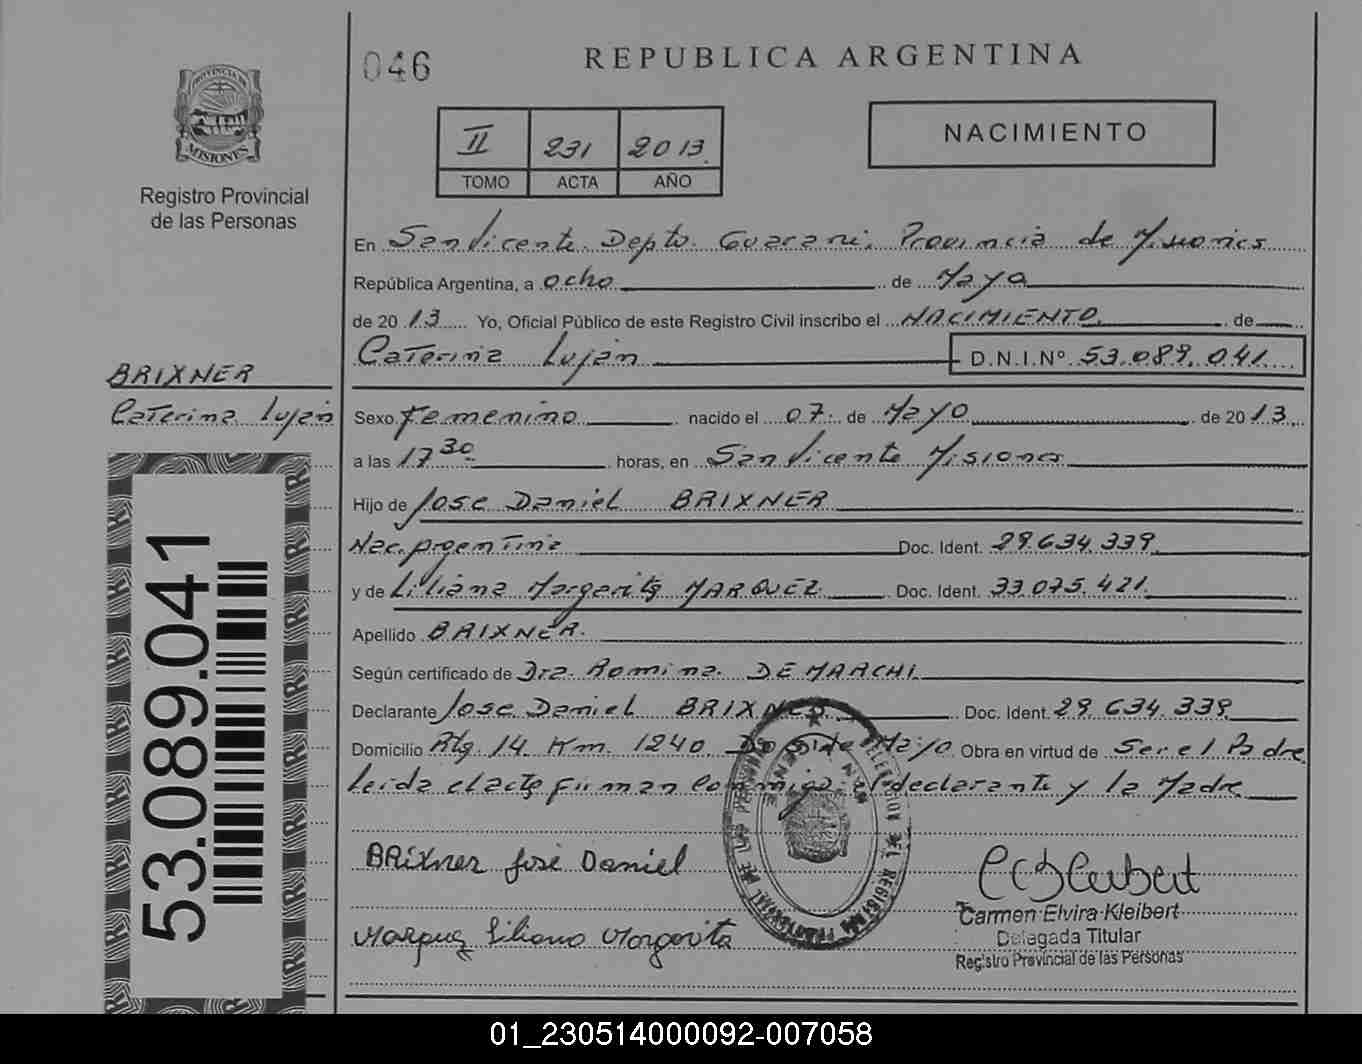 046
REPUBLICA ARGENTINA
PROVINCIA DE
MISIONES
Registro Provincial
de las Personas
II 231 2013
TOMO ACTA AÑO
NACIMIENTO
En San Vicente Depto. Guarani, Provincia de Misiones
República Argentina, a ocho de Mayo
de 2013 Yo, Oficial Público de este Registro Civil inscribo el NACIMIENTO de
Caterina Luján D.N.I.Nº 53.089.041
BRIXNER
Caterina Luján
Sexo Femenino nacido el 07 de Mayo de 2013
a las 17 30 horas, en San Vicente Misiones
Hijo de Jose Daniel BRIXNER
Nac. Argentina Doc. Ident. 29.634.339
y de Liliana Margarita MARQUEZ Doc. Ident. 33.075.421
Apellido BRIXNER
Según certificado de Dra. Romina DEMARCHI
Declarante Jose Daniel BRIXNER Doc. Ident. 29.634.339
Domicilio Rtg. 14 Km. 1240 Dos de Mayo Obra en virtud de Ser el Padre
Leida el acta firman conmigo, declarante y la Madre
53.089.041
BRixner José Daniel
Marquez Liliana Margarita
Carmen Elvira Kleibert
Delegada Titular
Registro Provincial de las Personas
01_230514000092-007058